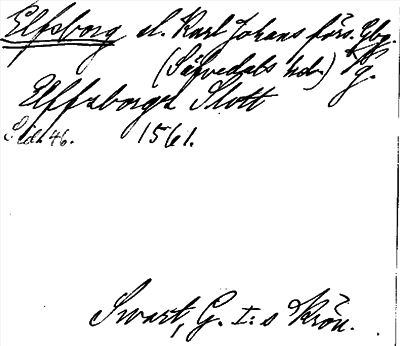 Elfsborg el. Karl Johans förs. Gbg.
(Säfvedals hdr) G.
Elffzborgz Slott
Sid. 46. 1561.
Swart, G. I:s Krön.